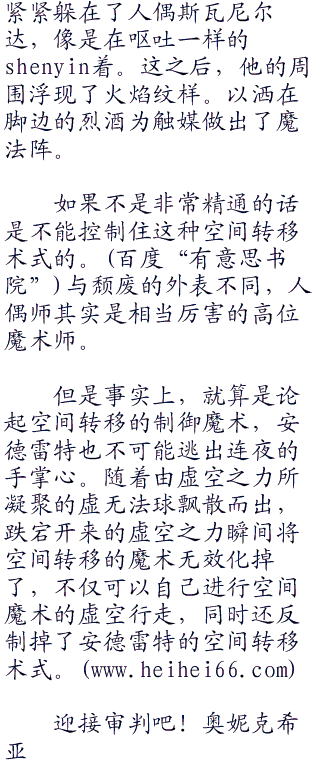 紧紧躲在了人偶斯瓦尼尔
达，像是在呕吐一样的
shenyin着。这之后，他的周
围浮现了火焰纹样。以洒在
脚边的烈酒为触媒做出了魔
法阵。
如果不是非常精通的话
是不能控制住这种空间转移
术式的。(百度“有意思书
院”)与颓废的外表不同，人
偶师其实是相当厉害的高位
魔术师。
但是事实上，就算是论
起空间转移的制御魔术，安
德雷特也不可能逃出连夜的
手掌心。随着由虚空之力所
凝聚的虚无法球飘散而出，
跌宕开来的虚空之力瞬间将
空间转移的魔术无效化掉
了，不仅可以自己进行空间
魔术的虚空行走，同时还反
制掉了安德雷特的空间转移
术式。(www.heihei66.com)
迎接审判吧！奥妮克希
亚